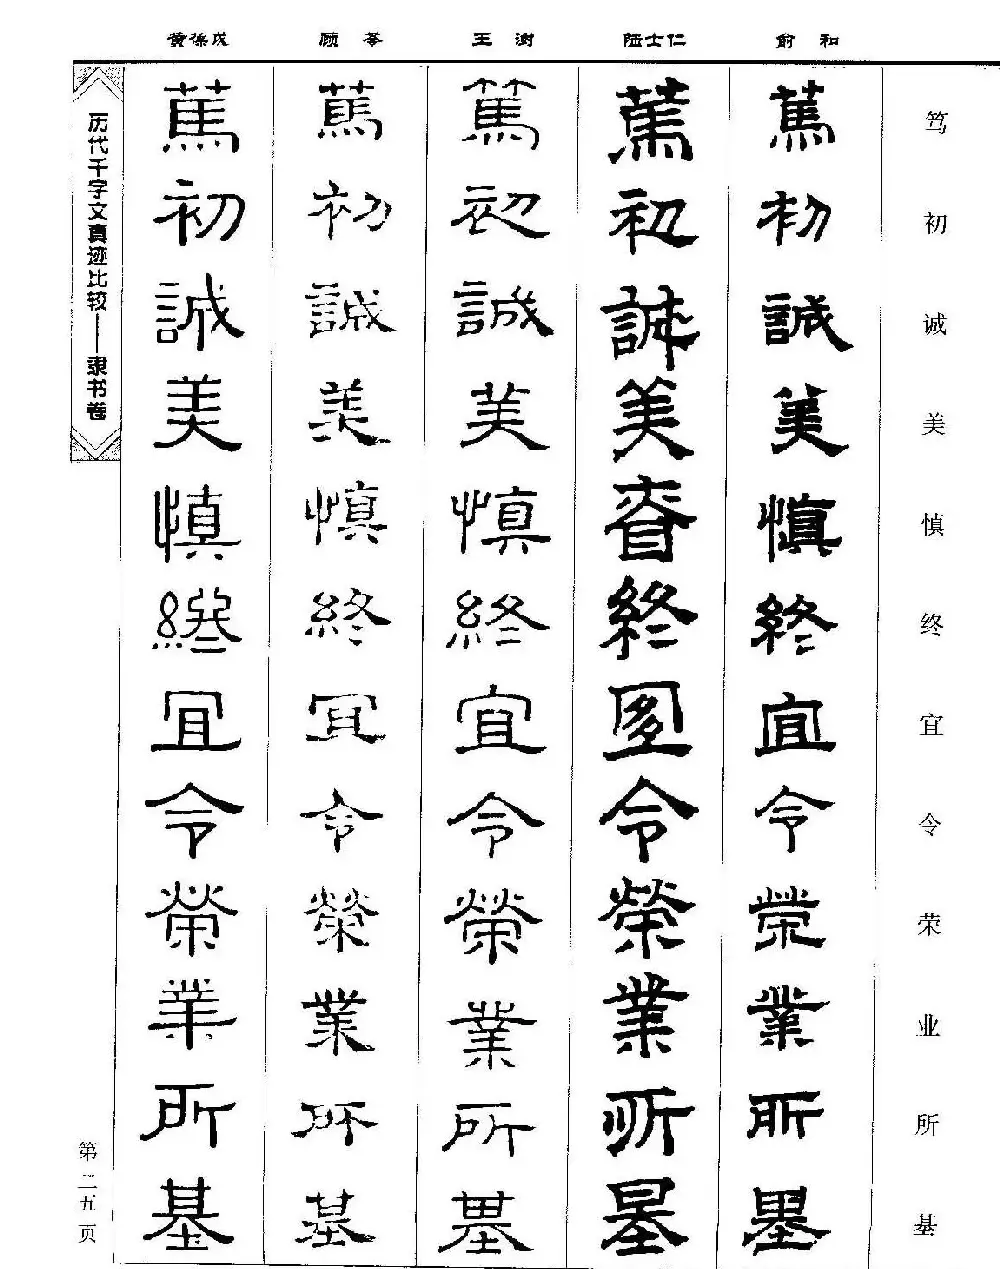 俞和
陆士仁
王澍
顾苓
黄葆戉
笃初诚美慎终宜令荣业所基
篤初誠美慎終宜令榮業所基
篤初誠美昚終宜令榮業所基
篤初誠美慎終宜令榮業所基
篤初誠美慎終宜令榮業所基
篤初誠美慎終宜令榮業所基
历代千字文真迹比较——隶书卷
第二五页